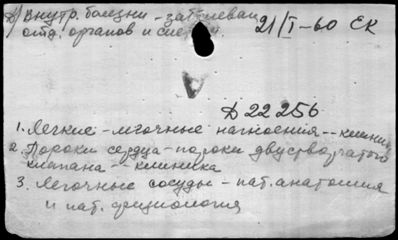 Д) Внутр. болезни - заболеван
отд. органов и сист. 21/I-60 ЕК
Д 22256
1. Легкие - легочные нагноения -- клиник
2. Пороки сердца - пороки двустворчатого
клапана -- клиника
3. Легочные сосуды - пат. анатомия
и пат. физиология